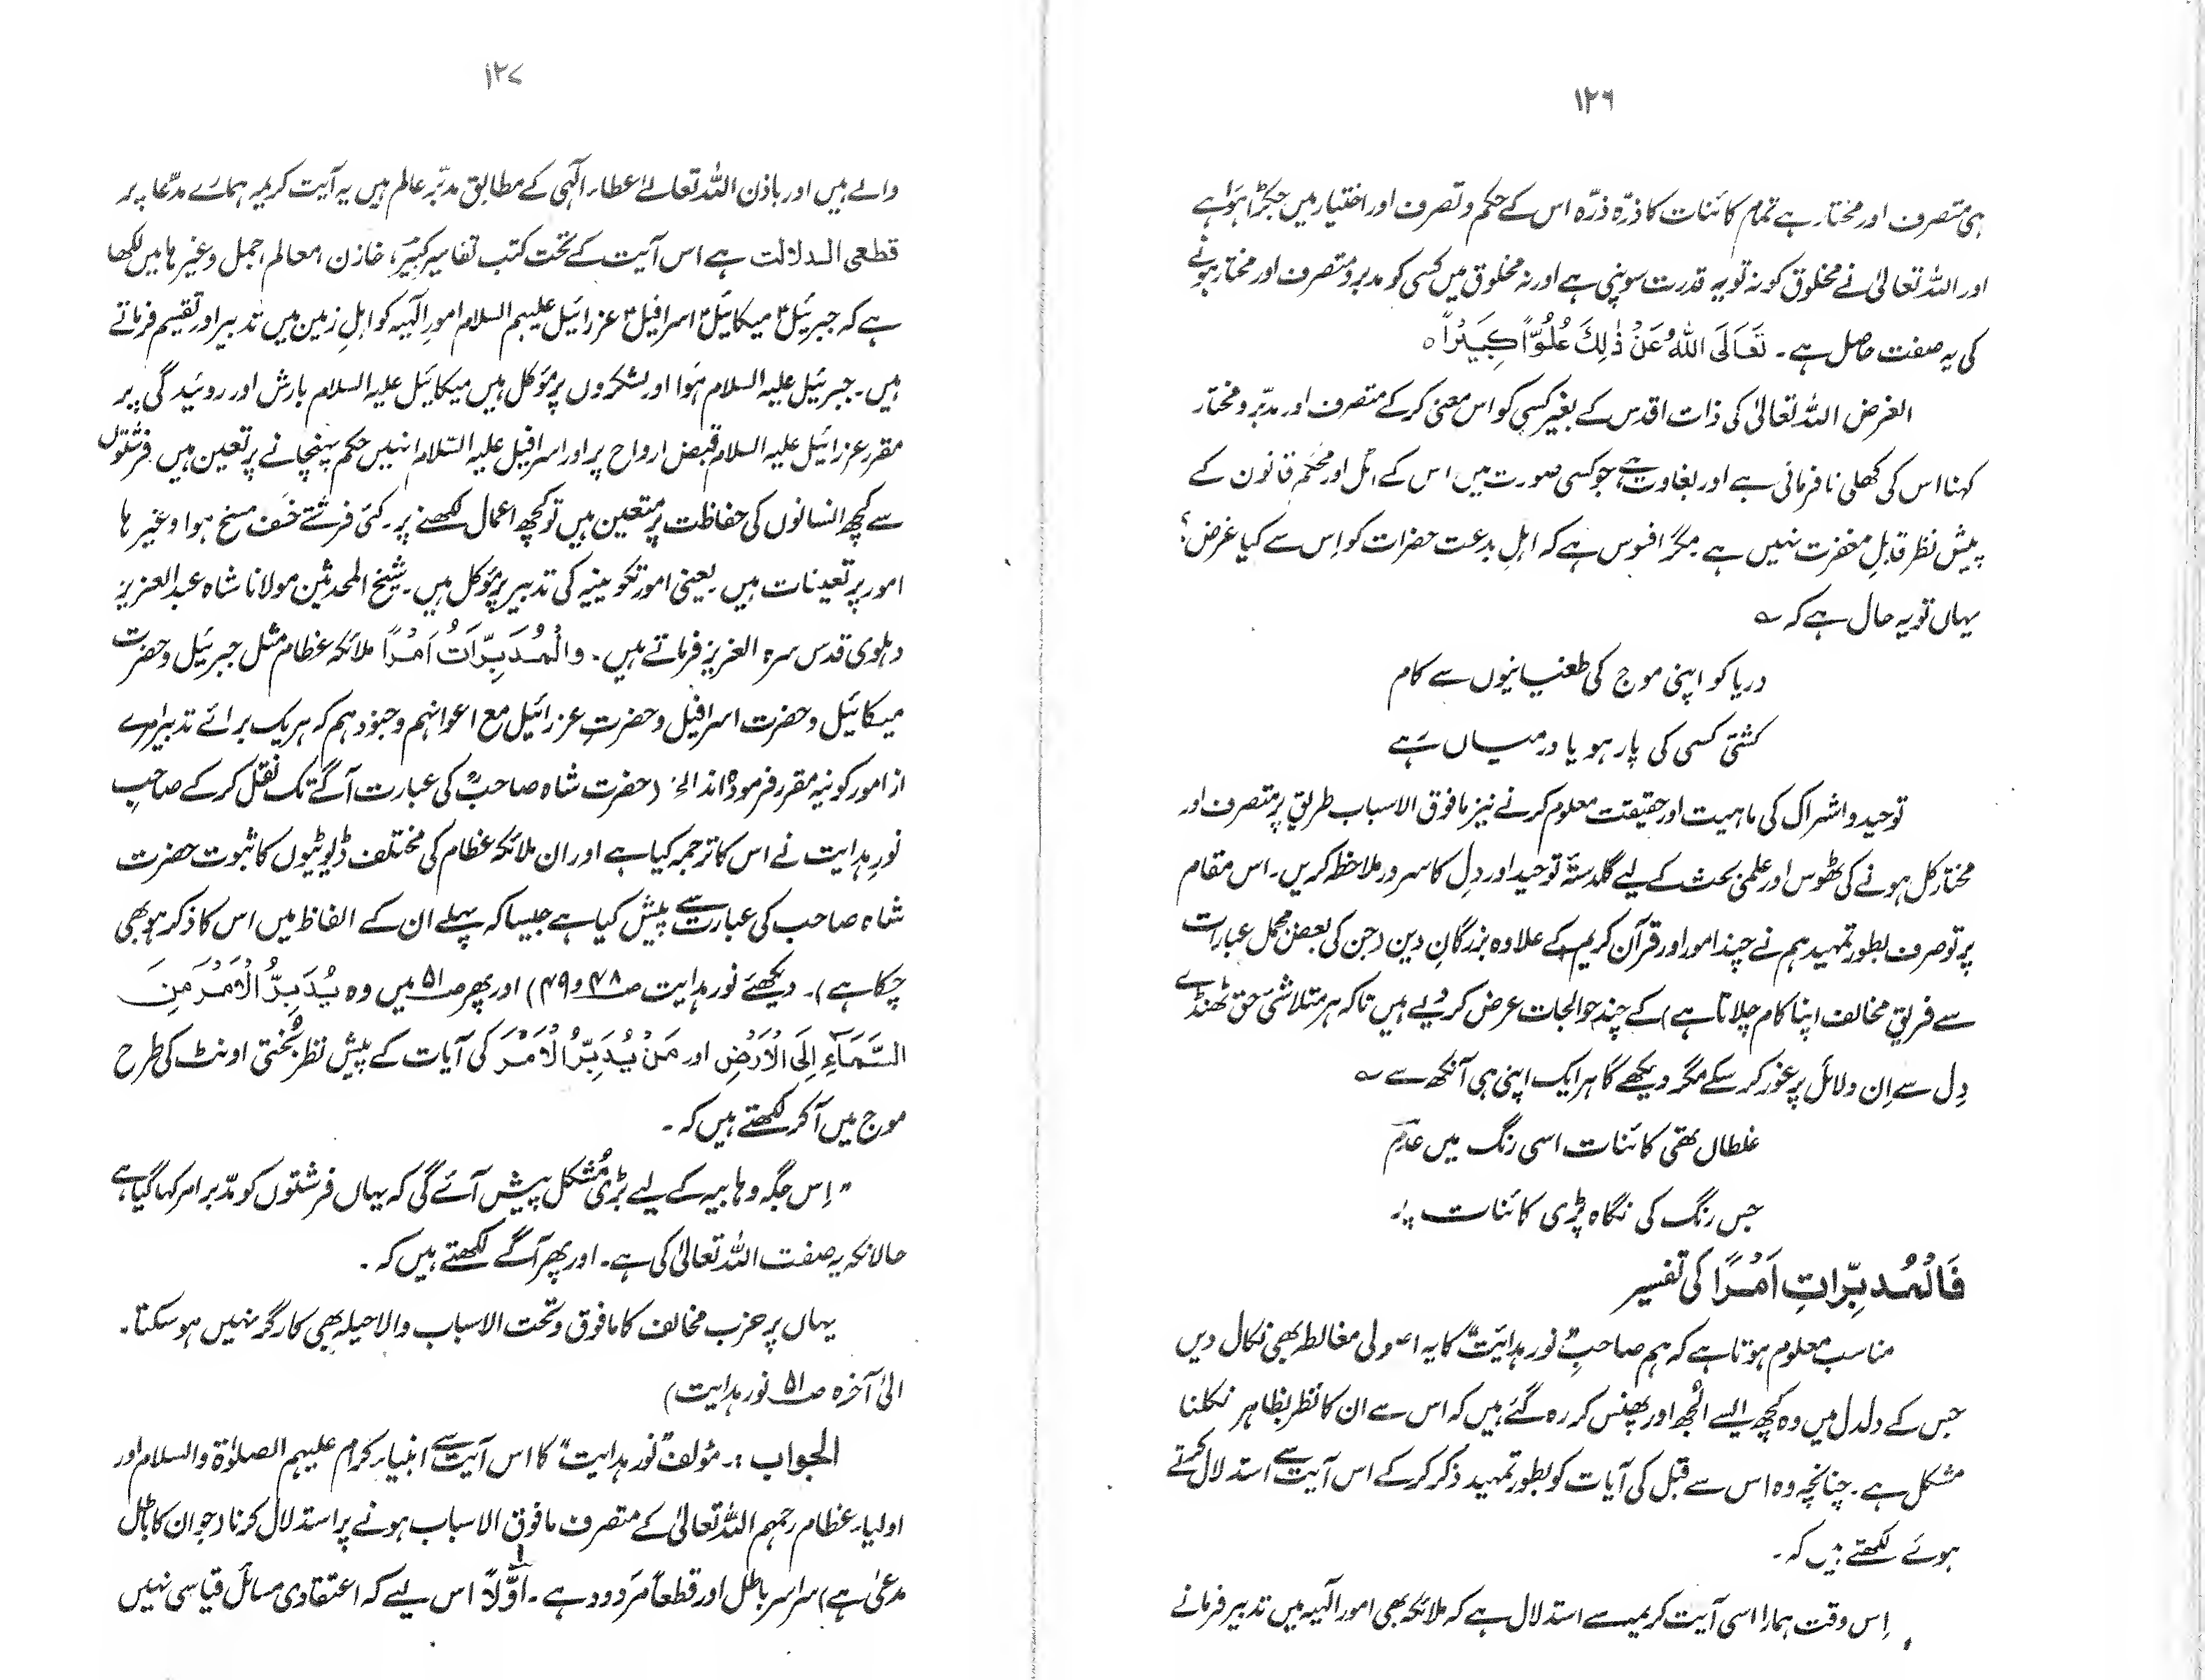 ۱۲۶
ہی متصرف اور مختار ہے تمام کائنات کا ذرّہ ذرّہ اس کے حکم و تصرف اور اختیار میں جکڑا ہوا ہے
اور اللہ تعالیٰ نے مخلوق کو نہ تو یہ قدرت سونپی ہے اور نہ مخلوق میں کسی کو مدبر و متصرف اور مختار ہونے
کی یہ صفت حاصل ہے۔ تَعَالَى اللهُ عَنْ ذٰلِكَ عُلُوًّا كَبِيْرًا ہ
الغرض اللہ تعالیٰ کی ذات اقدس کے بغیر کسی کو اس معنیٰ کر کے متصرف اور مدبّر و مختار
کہنا اس کی کھلی نافرمانی ہے اور بغاوت ہے جو کسی صورت میں اس کے اٹل اور محکم قانون کے
پیش نظر قابلِ مغفرت نہیں ہے مگر افسوس ہے کہ اہلِ بدعت حضرات کو اِس سے کیا غرض؟
یہاں تو یہ حال ہے کہ ؎
دریا کو اپنی موج کی طغیانیوں سے کام
کشتی کسی کی پار ہو یا درمیاں رہے
توحید و اشراک کی ماہیت اور حقیقت معلوم کرنے نیز مافوق الاسباب طریق پر متصرف اور
مختار کل ہونے کی ٹھوس اور علمی بحث کے لیے گلدستۂ توحید اور دِل کا سرور ملاحظہ کریں۔ اس مقام
پر تو صرف بطور تمہید ہم نے چند امور اور قرآن کریم کے علاوہ بزرگانِ دین (جن کی بعض مجمل عبارات
سے فریق مخالف اپنا کام چلاتا ہے) کے چند حوالجات عرض کر دیے ہیں تاکہ ہر متلاشیٔ حق ٹھنڈے
دِل سے اِن دلائل پر غور کر سکے مگر دیکھے گا ہر ایک اپنی ہی آنکھ سے ؎
غلطاں تھی کائنات اسی رنگ میں عدم
جس رنگ کی نگاہ پڑی کائنات پر
فَالْمُدَبِّرَاتِ اَمْرًا کی تفسیر
مناسب معلوم ہوتا ہے کہ ہم صاحبِ "نور ہدایت" کا یہ اصولی مغالطہ بھی نکال دیں
جس کے دلدل میں وہ کچھ ایسے اُلجھ اور پھنس کر رہ گئے ہیں کہ اس سے ان کا نظر بظاہر نکلنا
مشکل ہے۔ چنانچہ وہ اس سے قبل کی آیات کو بطور تمہید ذکر کر کے اس آیت سے استدلال کرتے
ہوئے لکھتے ہیں کہ۔
اِس وقت ہمارا اسی آیت کریمہ سے استدلال ہے کہ ملائکہ بھی امور الٰہیہ میں تدبیر فرمانے
۱۲۷
والے ہیں اور باذن اللہ تعالےٰ عطاء الٰہی کے مطابق مدبّر عالم ہیں یہ آیت کریمہ ہمارے مدّعا پر
قطعی الدلالت ہے اس آیت کے تحت کتب تفاسیر کبیر، خازن، معالم، جمل وغیرہا میں لکھا
ہے کہ جبرئیلؑ میکائیلؑ اسرافیلؑ عزرائیل علیہم السلام امور الٰہیہ کو اہلِ زمین میں تدبیر اور تقسیم فرماتے
ہیں۔ جبرئیل علیہ السلام ہوا اور لشکروں پر مؤکل ہیں میکائیل علیہ السلام بارش اور روئیدگی پر
مقرر عزرائیل علیہ السلام قبض ارواح پر اور اسرافیل علیہ السّلام انہیں حکم پہنچانے پر تعین ہیں فرشتوں
سے کچھ انسانوں کی حفاظت پر متعین ہیں تو کچھ اعمال لکھنے پر۔ کئی فرشتے خسف مسخ ہوا وغیرہا
امور پر تعینات ہیں۔ یعنی امور تکوینیہ کی تدبیر پر مؤکل ہیں۔ شیخ المحدثین مولانا شاہ عبد العزیز
دہلوی قدس سرہ العزیز فرماتے ہیں۔ والْمُدَبِّرَاتُ اَمْرًا ملائکہ عظام مثل جبرئیل و حضرت
میکائیل و حضرت اسرافیل و حضرت عزرائیل مع اعوانہم وجنودہم کہ ہریک برائے تدبیر امرے
از امور کونیہ مقرر فرمودہ اند الخ۔ (حضرت شاہ صاحبؒ کی عبارت آگے تک نقل کر کے صاحبِ
نورِ ہدایت نے اس کا ترجمہ کیا ہے اور ان ملائکہ عظام کی مختلف ڈیوٹیوں کا ثبوت حضرت
شاہ صاحب کی عبارت سے پیش کیا ہے جیسا کہ پہلے ان کے الفاظ میں اس کا ذکر ہو بھی
چکا ہے)۔ دیکھئے نور ہدایت صـ۴۸ و ۴۹) اور پھر صـ۵۱ میں وہ يُدَبِّرُ الْاَمْرَ مِنَ
السَّمَآءِ اِلَى الْاَرْضِ اور مَنْ يُدَبِّرُ الْاَمْرَ کی آیات کے پیش نظر بُختی اونٹ کی طرح
موج میں آ کر لکھتے ہیں کہ۔
"اِس جگہ وہابیہ کے لیے بڑی مُشکل پیش آئے گی کہ یہاں فرشتوں کو مدّبر امر کہا گیا ہے
حالانکہ یہ صفت اللہ تعالیٰ کی ہے۔ اور پھر آگے لکھتے ہیں کہ۔
یہاں پر حزب مخالف کا مافوق و تحت الاسباب والا حیلہ بھی کارگر نہیں ہو سکتا۔
الیٰ آخرہ صـ۵۱ نور ہدایت)
الجواب :۔ مؤلف "نور ہدایت" کا اس آیت سے انبیاء کرام علیہم الصلوٰۃ والسلام اور
اولیاء عظام رحمہم اللہ تعالیٰ کے متصرف مافوق الاسباب ہونے پر استدلال کرنا (جو ان کا باطل
مدعیٰ ہے) سراسر باطل اور قطعاً مردود ہے۔ اَوَّلاً اس لیے کہ اعتقادی مسائل قیاسی نہیں